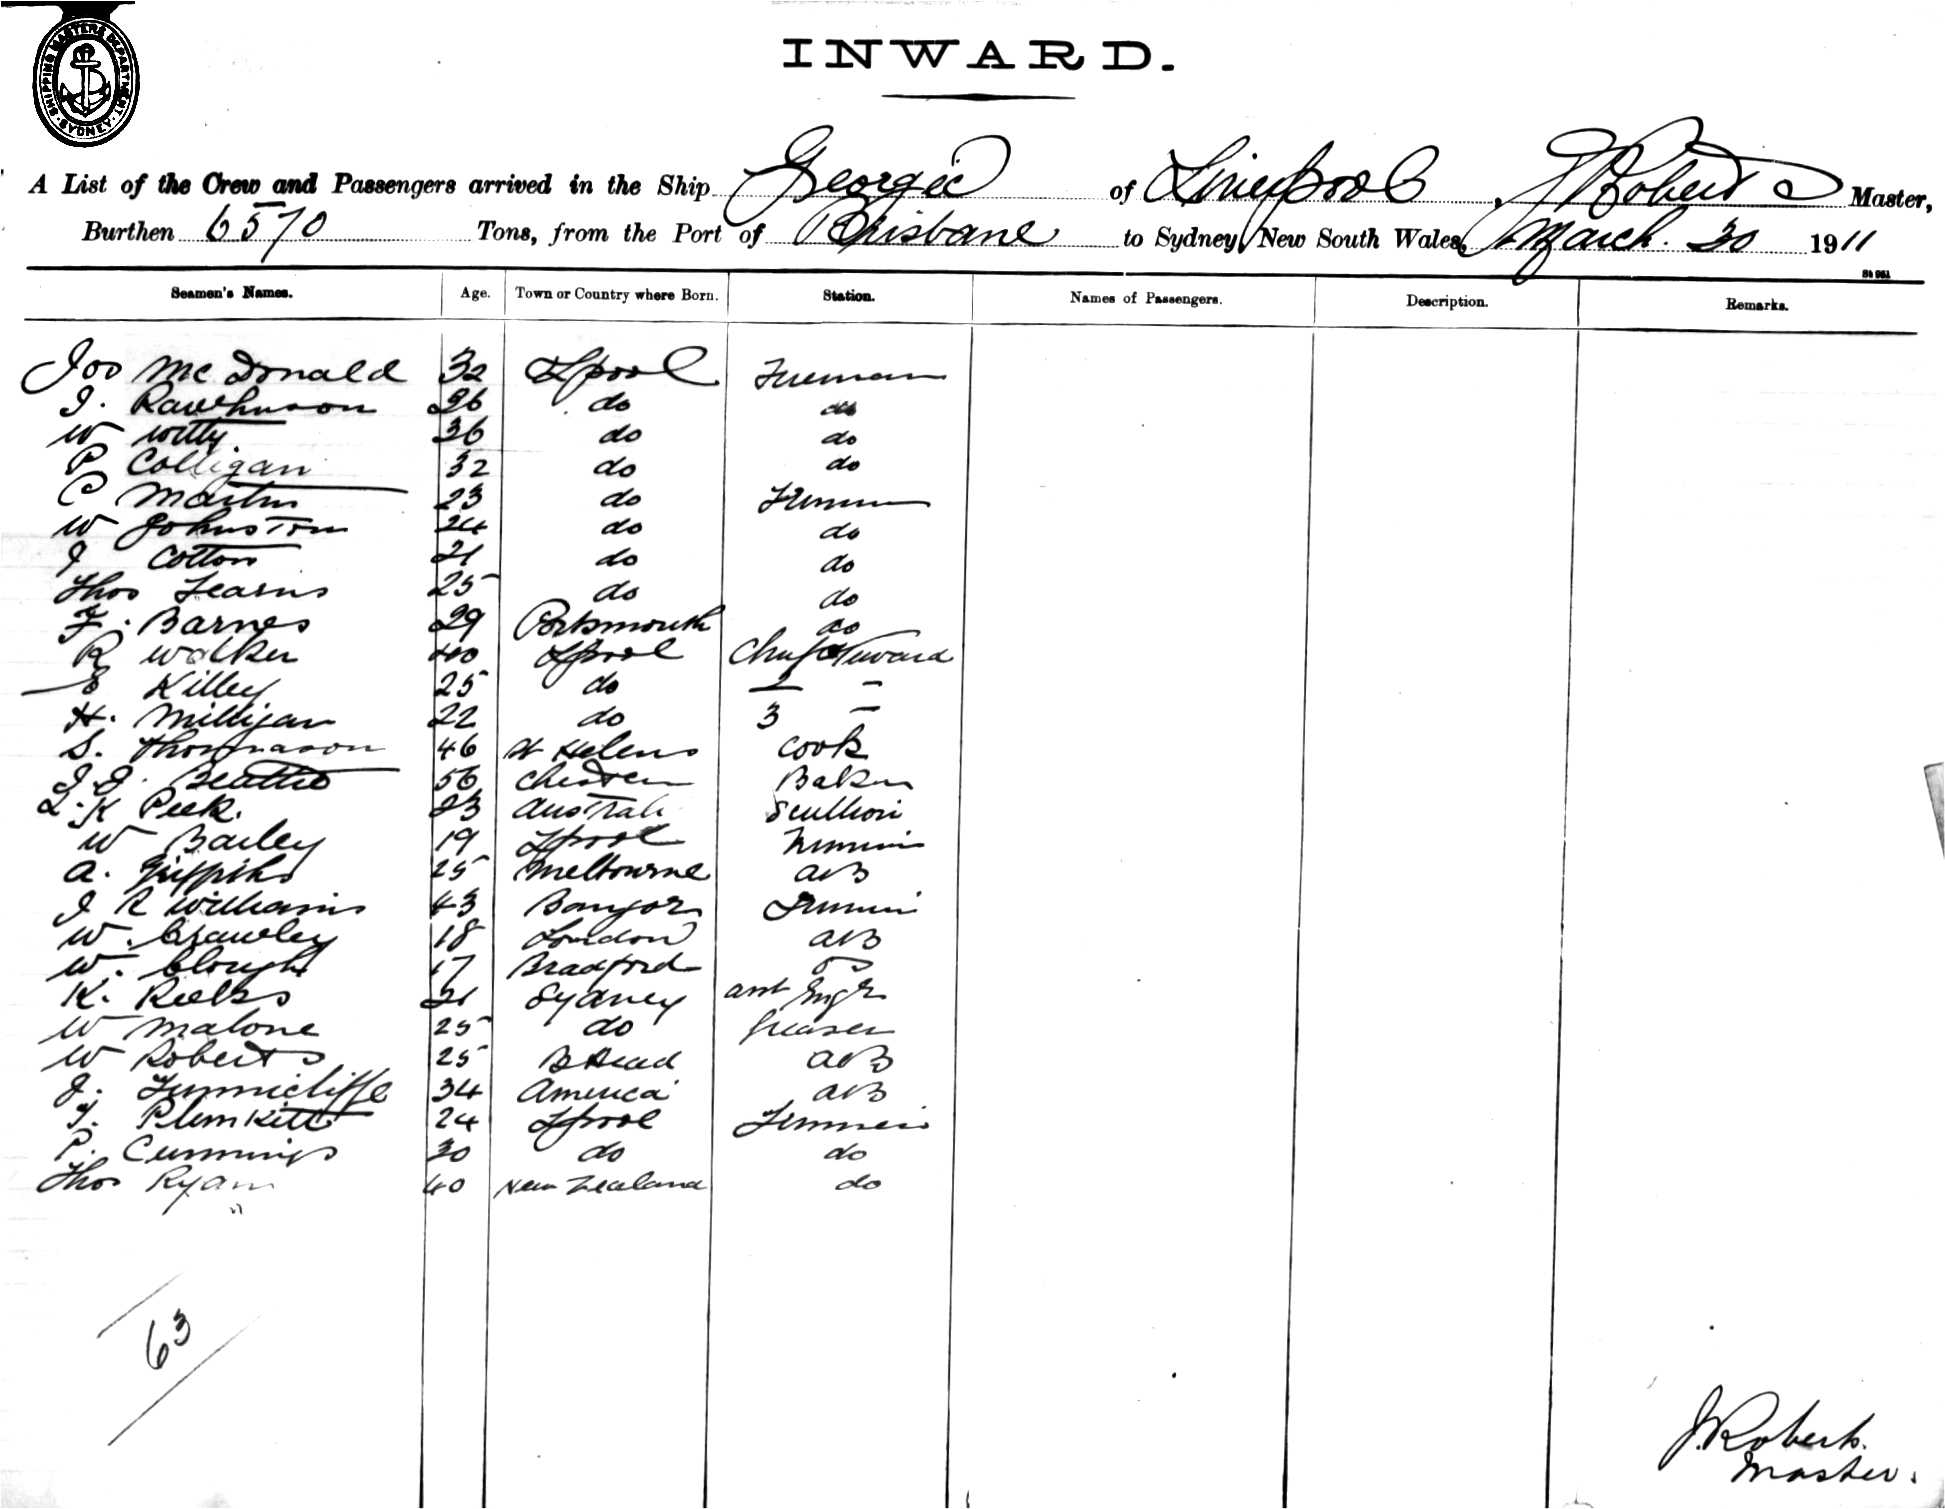 SHIPPING MASTERS DEPARTMENT SYDNEY
INWARD.
A List of the Crew and Passengers arrived in the Ship Georgic of Liverpool, J Roberts Master,
Burthen 6570 Tons, from the Port of Brisbane to Sydney, New South Wales, March. 30 1911
Seamen's Names. Age. Town or Country where Born. Station. Names of Passengers. Description. Remarks.
Jos McDonald 32 Lpool Fireman
J. Rawlinson 26 do do
W Witty 36 do do
P Colligan 32 do do
C Martin 23 do
W Johnston 24 do do
J Cotton 21 do do
Thos Fearns 25 do do
F. Barnes 29 Portsmouth do
R Walker 40 Lpool Chief Steward
E Killey 25 do 2 -
H. Milligan 22 do 3 -
S. Thomason 46 St Helens Cook
J. J. Beattie 56 Chester Baker
L. K Peek. 23 Scullion
W Bailey 19 Lpool
A. Griffiths 25 Melbourne AB
J R Williams 43 Bangor
W. Crawley 18 London AB
W. Clough 17 Bradford OS
K. 21 Sydney asst
W Malone 25 do Greaser
W Roberts 25 B Head AB
J. Tunnicliffe 34 America AB
T. Plunkett 24 Lpool
P. Cummings 30 do do
Thos Ryan 40 New Zealand do
63
J. Roberts.
Master.